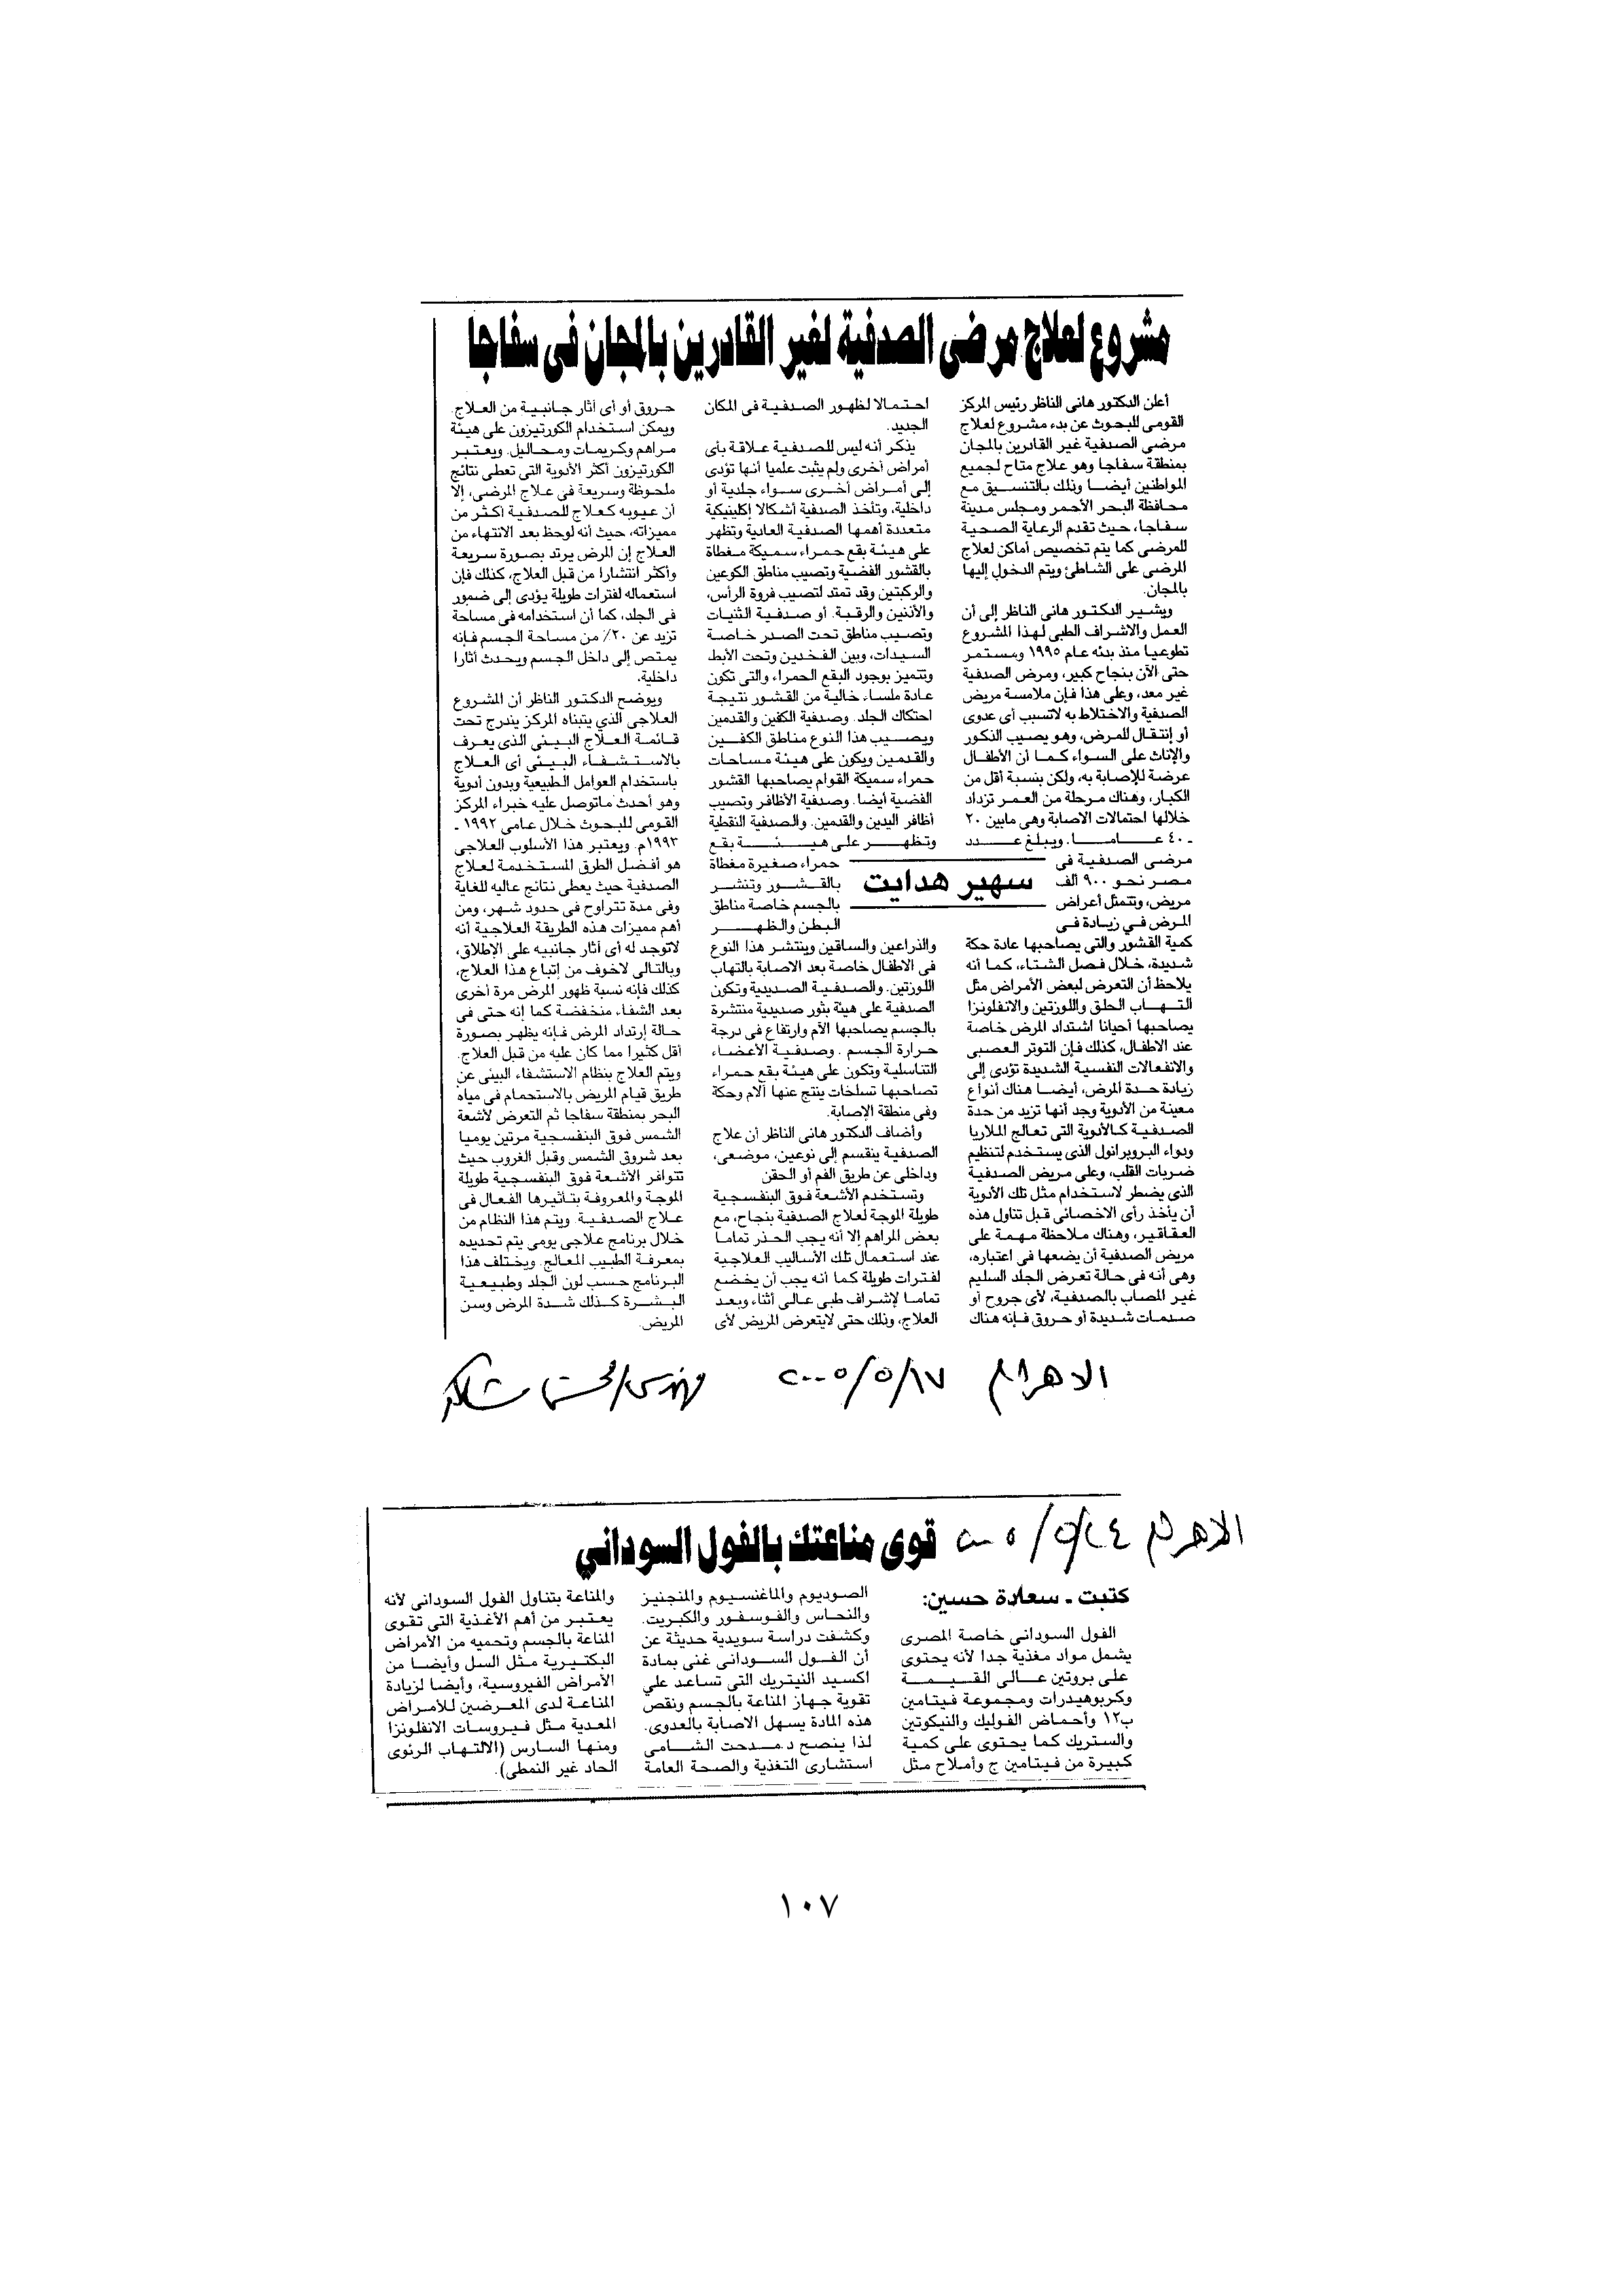 مشروع لعلاج مرضى الصدفية لغير القادرين بالمجان فى سفاجا
أعلن الدكتور هانى الناظر رئيس المركز
القومى للبحوث عن بدء مشروع لعلاج
مرضى الصدفية غير القادرين بالمجان
بمنطقة سفاجا وهو علاج متاح لجميع
المواطنين أيضا وذلك بالتنسيق مع
محافظة البحر الأحمر ومجلس مدينة
سفاجا، حيث تقدم الرعاية الصحية
للمرضى كما يتم تخصيص أماكن لعلاج
المرضى على الشاطئ ويتم الدخول إليها
بالمجان.
ويشير الدكتور هانى الناظر إلى أن
العمل والاشراف الطبى لهذا المشروع
تطوعيا منذ بدئه عام ١٩٩٥ ومستمر
حتى الآن بنجاح كبير، ومرض الصدفية
غير معد، وعلى هذا فإن ملامسة مريض
الصدفية والاختلاط به لاتسبب أى عدوى
أو إنتقال للمرض، وهو يصيب الذكور
والإناث على السواء كما أن الأطفال
عرضة للإصابة به، ولكن بنسبة أقل من
الكبار، وهناك مرحلة من العمر تزداد
خلالها احتمالات الاصابة وهى مابين ٢٠
ـ ٤٠ عاما. ويبلغ عدد
مرضى الصدفية فى
مصر نحو ٩٠٠ ألف
مريض، وتتمثل أعراض
المرض في زيادة فى
كمية القشور والتى يصاحبها عادة حكة
شديدة، خلال فصل الشتاء، كما أنه
يلاحظ أن التعرض لبعض الأمراض مثل
التهاب الحلق واللوزتين والانفلونزا
يصاحبها أحيانا اشتداد المرض خاصة
عند الاطفال، كذلك فإن التوتر العصبى
والانفعالات النفسية الشديدة تؤدى إلى
زيادة حدة المرض، أيضا هناك أنواع
معينة من الأدوية وجد أنها تزيد من حدة
الصدفية كالأدوية التى تعالج الملاريا
ودواء البروبرانول الذى يستخدم لتنظيم
ضربات القلب، وعلى مريض الصدفية
الذى يضطر لاستخدام مثل تلك الأدوية
أن يأخذ رأى الاخصائى قبل تناول هذه
العقاقير، وهناك ملاحظة مهمة على
مريض الصدفية أن يضعها فى اعتباره،
وهى أنه فى حالة تعرض الجلد السليم
غير المصاب بالصدفية، لأى جروح أو
صدمات شديدة أو حروق فإنه هناك
سهير هدايت
احتمالا لظهور الصدفية فى المكان
الجديد.
يذكر أنه ليس للصدفية علاقة بأى
أمراض أخرى ولم يثبت علميا أنها تؤدى
إلى أمراض أخرى سواء جلدية أو
داخلية، وتأخذ الصدفية أشكالا إكلينيكية
متعددة أهمها الصدفية العادية وتظهر
على هيئة بقع حمراء سميكة مغطاة
بالقشور الفضية وتصيب مناطق الكوعين
والركبتين وقد تمتد لتصيب فروة الرأس،
والأذنين والرقبة. أو صدفية الثنيات
وتصيب مناطق تحت الصدر خاصة
السيدات، وبين الفخدين وتحت الأبط
وتتميز بوجود البقع الحمراء والتى تكون
عادة ملساء خالية من القشور نتيجة
احتكاك الجلد. وصدفية الكفين والقدمين
ويصيب هذا النوع مناطق الكفين
والقدمين ويكون على هيئة مساحات
حمراء سميكة القوام يصاحبها القشور
الفضية أيضا. وصدفية الأظافر وتصيب
أظافر اليدين والقدمين. والصدفية النقطية
وتظهر على هيئة بقع
حمراء صغيرة مغطاة
بالقشور وتنشر
بالجسم خاصة مناطق
البطن والظهر
والذراعين والساقين وينتشر هذا النوع
فى الاطفال خاصة بعد الاصابة بالتهاب
اللوزتين. والصدفية الصديدية وتكون
الصدفية على هيئة بثور صديدية منتشرة
بالجسم يصاحبها الأم وارتفاع فى درجة
حرارة الجسم. وصدفية الأعضاء
التناسلية وتكون على هيئة بقع حمراء
تصاحبها تسلخات ينتج عنها آلام وحكة
وفى منطقة الإصابة.
وأضاف الدكتور هانى الناظر أن علاج
الصدفية ينقسم إلى نوعين، موضعى،
وداخلى عن طريق الفم أو الحقن
وتستخدم الأشعة فوق البنفسجية
طويلة الموجة لعلاج الصدفية بنجاح، مع
بعض المراهم إلا أنه يجب الحذر تماما
عند استعمال تلك الأساليب العلاجية
لفترات طويلة كما أنه يجب أن يخضع
تماما لإشراف طبى عالى أثناء وبعد
العلاج، وذلك حتى لايتعرض المريض لأى
حروق أو أى أثار جانبية من العلاج.
ويمكن استخدام الكورتيزون على هيئة
مراهم وكريمات ومحاليل. ويعتبر
الكورتيزون أكثر الأدوية التى تعطى نتائج
ملحوظة وسريعة فى علاج المرضى، إلا
أن عيوبه كعلاج للصدفية اكثر من
مميزاته، حيث أنه لوحظ بعد الانتهاء من
العلاج إن المرض يرتد بصورة سريعة
وأكثر انتشارا من قبل العلاج، كذلك فإن
استعماله لفترات طويلة يؤدى إلى ضمور
فى الجلد، كما أن استخدامه فى مساحة
تزيد عن ٢٠٪ من مساحة الجسم فإنه
يمتص إلى داخل الجسم ويحدث أثارا
داخلية.
ويوضح الدكتور الناظر أن المشروع
العلاجى الذي يتبناه المركز يندرج تحت
قائمة العلاج البيئى الذى يعرف
بالاستشفاء البيئى أى العلاج
باستخدام العوامل الطبيعية وبدون أدوية
وهو أحدث ماتوصل عليه خبراء المركز
القومى للبحوث خلال عامى ١٩٩٢ ـ
١٩٩٣م. ويعتبر هذا الأسلوب العلاجى
هو أفضل الطرق المستخدمة لعلاج
الصدفية حيث يعطى نتائج عاليه للغاية
وفى مدة تتراوح فى حدود شهر، ومن
أهم مميزات هذه الطريقة العلاجية أنه
لاتوجد له أى أثار جانبيه على الإطلاق،
وبالتالى لاخوف من إتباع هذا العلاج،
كذلك فإنه نسبة ظهور المرض مرة أخرى
بعد الشفاء منخفضة كما إنه حتى فى
حالة إرتداد المرض فإنه يظهر بصورة
أقل كثيرا مما كان عليه من قبل العلاج.
ويتم العلاج بنظام الاستشفاء البيئى عن
طريق قيام المريض بالاستحمام فى مياه
البحر بمنطقة سفاجا ثم التعرض لأشعة
الشمس فوق البنفسجية مرتين يوميا
بعد شروق الشمس وقبل الغروب حيث
تتوافر الأشعة فوق البنفسجية طويلة
الموجة والمعروفة بتأثيرها الفعال فى
علاج الصدفية. ويتم هذا النظام من
خلال برنامج علاجى يومى يتم تحديده
بمعرفة الطبيب المعالج. ويختلف هذا
البرنامج حسب لون الجلد وطبيعية
البشرة كذلك شدة المرض وسن
المريض.
الاهرام ١٧/٥/٢٠٠٥
الاهرام ٢٤/٥/٢٠٠٥
قوى مناعتك بالفول السوداني
كتبت ـ سعادة حسين:
الفول السودانى خاصة المصرى
يشمل مواد مغذية جدا لأنه يحتوى
على بروتين عالى القيمة
وكربوهيدرات ومجموعة فيتامين
ب١٢ وأحماض الفوليك والنيكوتين
والستريك كما يحتوى على كمية
كبيرة من فيتامين ج وأملاح مثل
الصوديوم والماغنسيوم والمنجنيز
والنحاس والفوسفور والكبريت.
وكشفت دراسة سويدية حديثة عن
أن الفول السودانى غنى بمادة
اكسيد النيتريك التى تساعد علي
تقوية جهاز المناعة بالجسم ونقص
هذه المادة يسهل الاصابة بالعدوى.
لذا ينصح د.مدحت الشامى
استشارى التغذية والصحة العامة
والمناعة بتناول الفول السودانى لأنه
يعتبر من أهم الأغذية التى تقوى
المناعة بالجسم وتحميه من الأمراض
البكتيرية مثل السل وأيضا من
الأمراض الفيروسية، وأيضا لزيادة
المناعة لدى المعرضين للأمراض
المعدية مثل فيروسات الانفلونزا
ومنها السارس (الالتهاب الرئوى
الحاد غير النمطى).
١٠٧